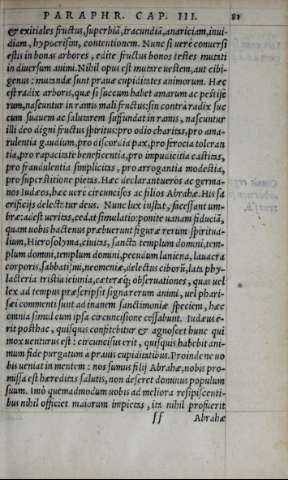 PARAPHR. CAP. III. 81
& exitiales fructus, superbiã, iracundiã, auariciam, inui-
diam, hypocrisim, contentionem. Nunc si uere conuersi
estis in bonas arbores, edite fructus bonos testes mutati
in diuersum animi. Nihil opus est mutare uestem, aut cibi-
genus: mutandæ sunt prauæ cupiditates animorum. Hæc
est radix arboris, quæ si succum habet amarum ac pestife
rum, nascuntur in ramis mali fructus: sin contra radix suc
cum suauem ac salutarem suffundat in ramis, nascuntur
illi deo digni fructus spiritus: pro odio charitas, pro æmu-
rulentia gaudium, pro discordia pax, pro ferocia toleran
tia, pro rapacitate beneficentia, pro impudicitia castitas,
pro fraudulentia simplicitas, pro arrogantia modestia,
pro superstitione pietas. Hæc declarant ueros ac germa-
nos Iudæos, hæc uere circuncisos ac filios Abrahæ. His sa
crificijs delectatur deus. Nunc lux instat, facessant um-
bræ: adest ueritas, cedat simulatio: ponite uanam fiduciã,
quam uobis hactenus præbuerunt figuræ rerum spiritua-
lium, Hierosolyma, ciuitas, sancta templum domini, tem-
plum domini, templum domini, pecudum laniena, lauacra
corporis, sabbatismi, neomeniæ, delectus ciborũ, lata phy-
lacteria, tristia ieiunia, cæteræq; obseruationes, quas uel
lex ad tempus præscripsit signa rerum animi, uel phari-
sæi commenti sunt ad inanem sanctimoniæ speciem, hæc
omnia simul cum ipsa circuncisione cessabunt. Iudæus e-
rit posthac, quisquis confitebitur & agnoscet hunc qui
mox uenturus est: circuncisus erit, quisquis habebit ani-
mum fide purgatum a prauis cupiditatibus. Proinde ne uo
bis ueniat in mentem: nos sumus filij Abrahæ, nobis pro-
missa est hæreditas salutis, non deseret dominus populum
suum. Imò quemadmodum uobis ad meliora resipiscenti-
bus nihil officiet maiorum impietas, ita nihil profuerit
ff Abrahæ